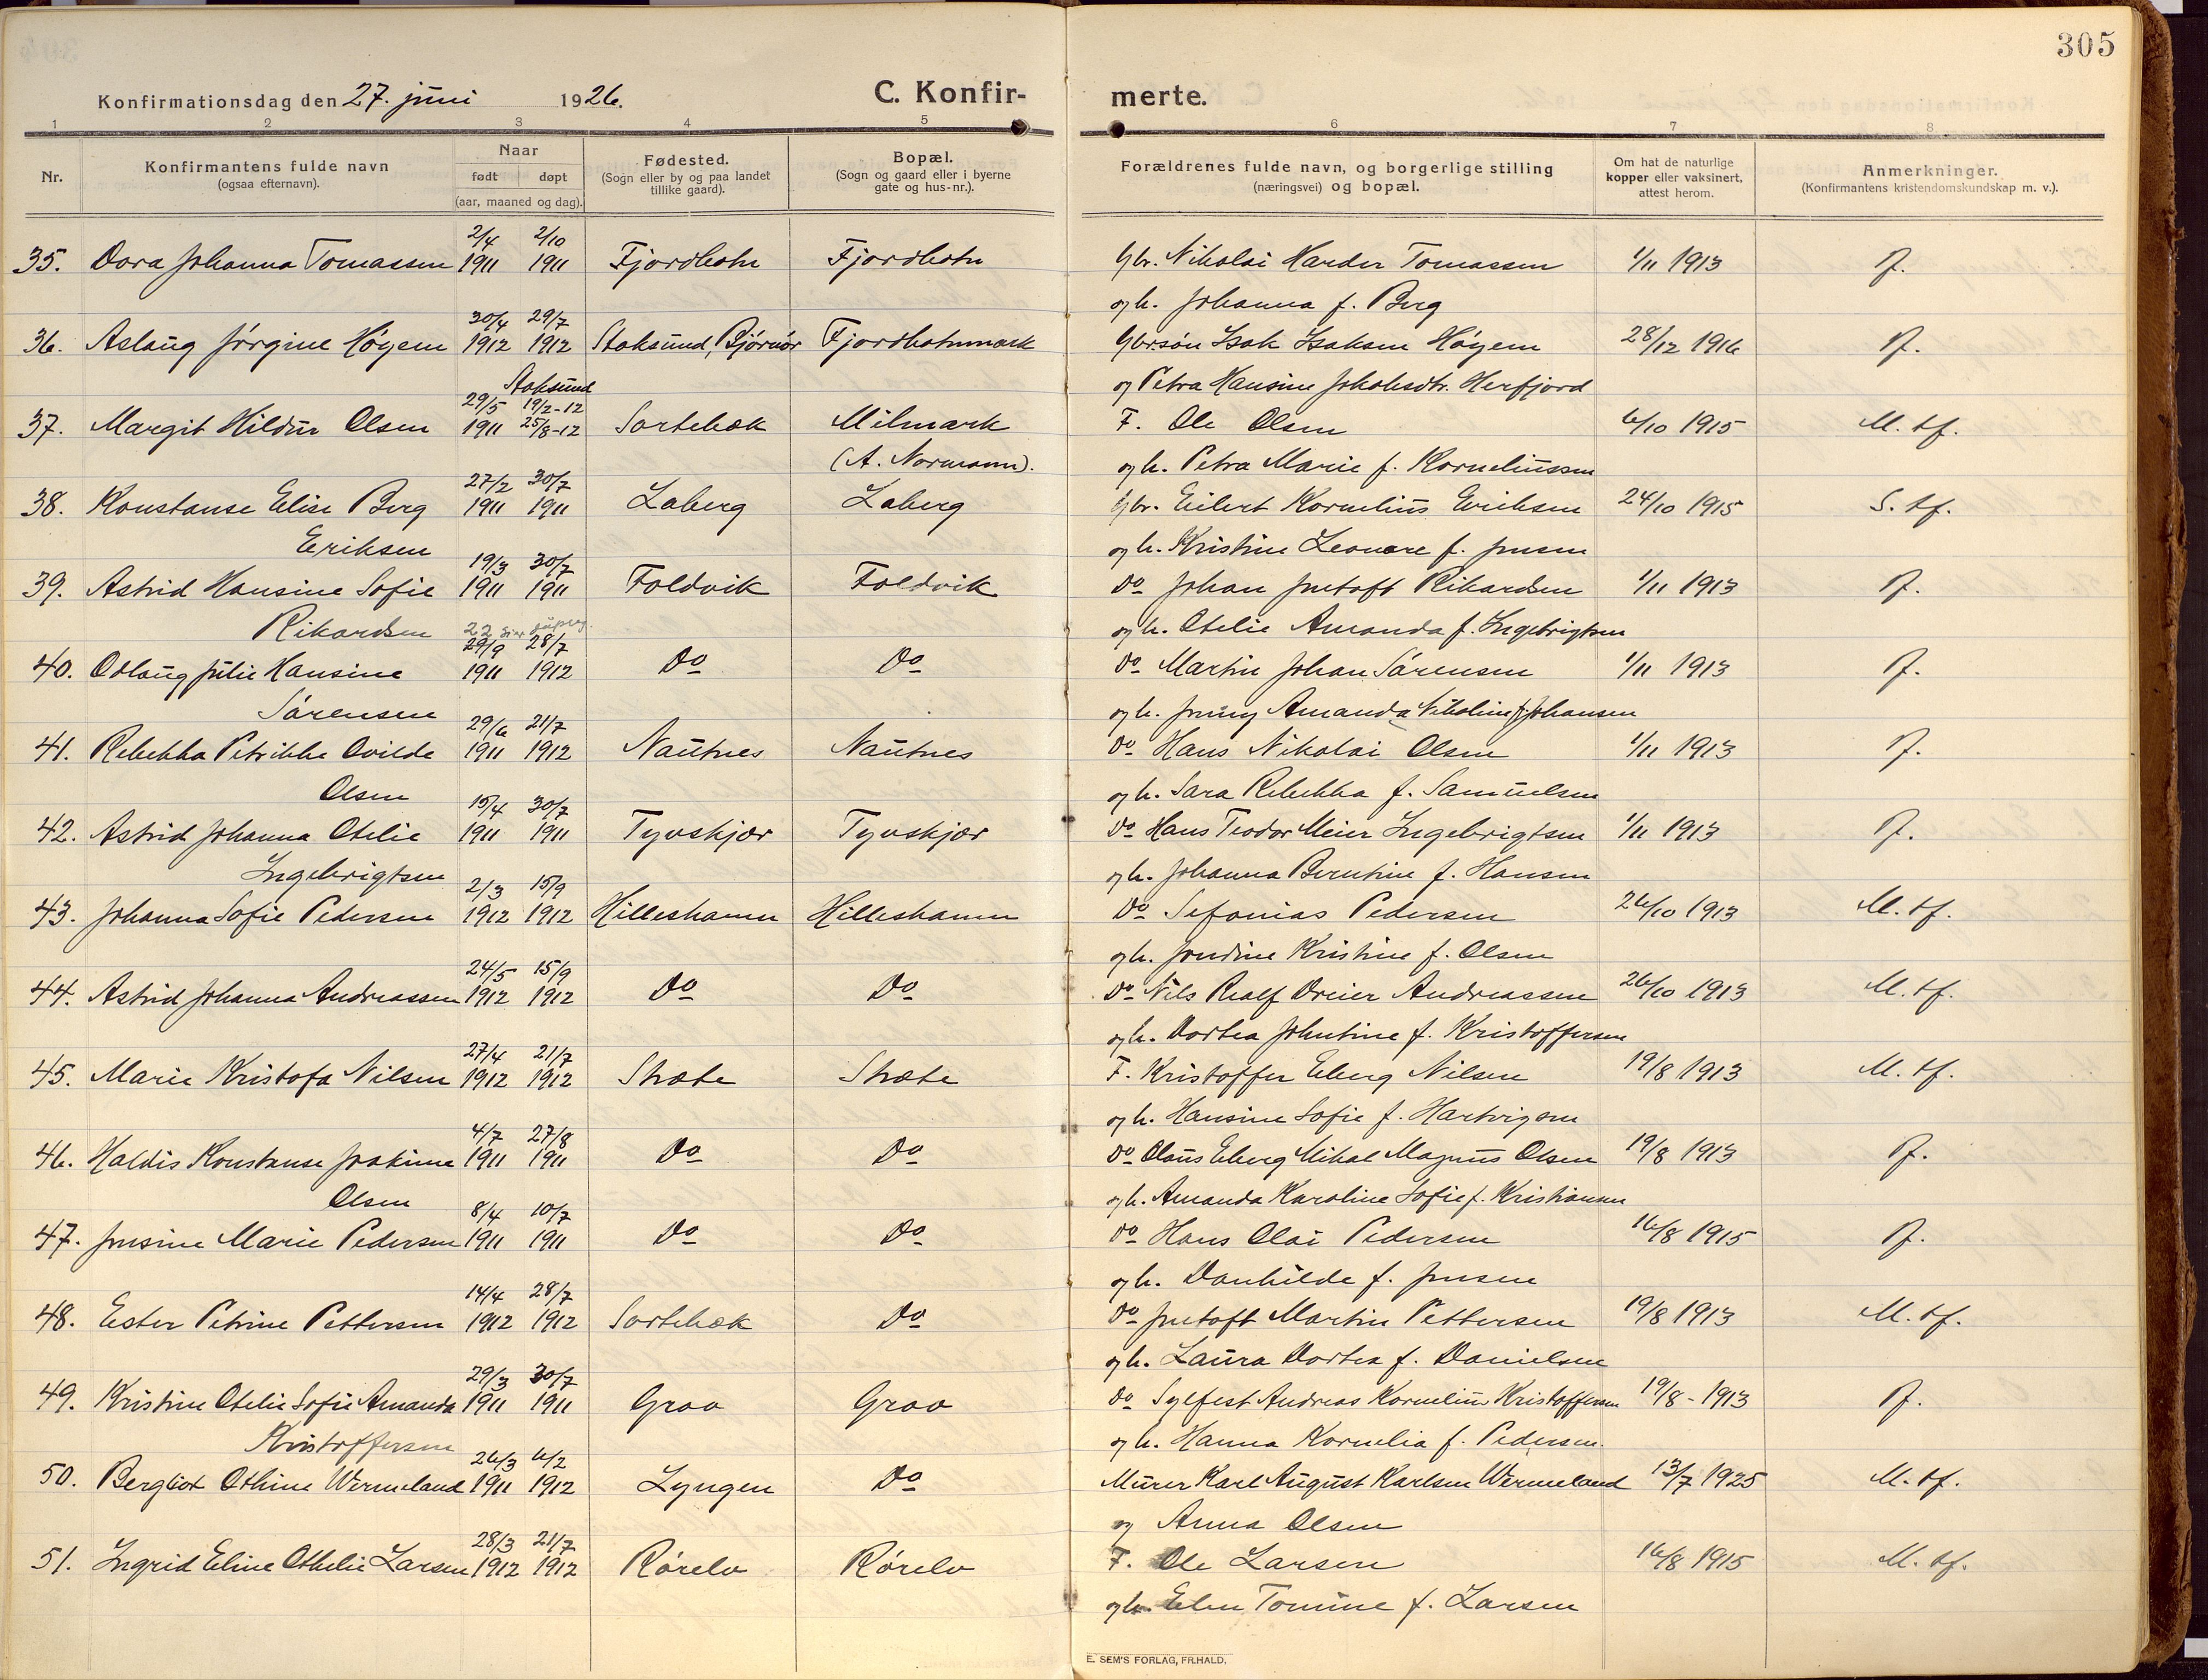 305
Konfirmationsdag den 27. juni 1926.
C. Konfir-merte.
1 2 3 4 5 6 7 8
Nr.
Konfirmantens fulde navn
(ogsaa efternavn).
Naar
født døpt
(aar, maaned og dag).
Fødested.
(Sogn eller by og paa landet
tillike gaard).
Bopæl.
(Sogn og gaard eller i byerne
gate og hus-nr.).
Forældrenes fulde navn, og borgerlige stilling
(næringsvei) og bopæl.
Om hat de naturlige
kopper eller vaksinert,
attest herom.
Anmerkninger.
(Konfirmantens kristendomskundskap m. v.).
2/4 2/10
35. Dora Johanna Tomassen 1911 1911 Fjordbotn Fjordbotn Gbr. Nikolai Harder Tomassen 1/11 1913
og h. Johanna f. Berg
30/4 29/7
36. Aslaug Jørgine Høyem 1912 1912 Stoksund, Bjørnør Fjordbotnmark Gbr.søn Isak Isaksen Høyem 28/12 1916
og Petra Hansine Jakobsdtr. Herfjord
Stoksund
29/5 19/2-12
37. Margit Hildur Olsen 1911 25/8-12 Sortebæk Milmark F. Ole Olsen 6/10 1915 M. tf.
(A. Normann). og h. Petra Marie f. Korneliussen
27/2 30/7
38. Konstanse Elise Berg 1911 1911 Laberg Laberg Gbr. Eilert Kornelius Eriksen 24/10 1915 S. tf.
Eriksen og h. Kristine Leonore f. Jensen
19/3 30/7
39. Astrid Hansine Sofie 1911 1911 Foldvik Foldvik Do Johan Jentoft Rikardsen 1/11 1913
Rikardsen og h. Otelie Amanda f. Ingebrigtsen
22
29/9 28/7
40. Odlaug Julie Hansine 1911 1912 Do Do Do Martin Johan Sørensen 1/11 1913
Sørensen og h. Jenny Amanda Nikoline f. Johansen
29/6 21/7
41. Rebekka Petrikke Ovilde 1911 1912 Nautnes Nautnes Do Hans Nikolai Olsen 1/11 1913
Olsen og h. Sara Rebekka f. Samuelsen
15/4 30/7
42. Astrid Johanna Otelie 1911 1911 Tyvskjær Tyvskjær Do Hans Teodor Meier Ingebrigtsen 1/11 1913
Ingebrigtsen og h. Johanna Berntine f. Hansen
2/3 15/9
43. Johanna Sofie Pedersen 1912 1912 Hilleshamn Hilleshamn Do Sefanias Pedersen 26/10 1913 M. tf.
og h. Jondine Kristine f. Olsen
24/5 15/9
44. Astrid Johanna Andreassen 1912 1912 Do Do Do Nils Realf Dreier Andreassen 26/10 1913 M. tf.
og h. Dortea Johntine f. Kristoffersen
27/4 21/7
45. Marie Kristofa Nilsen 1912 1912 Stræte Stræte F. Kristoffer Eberg Nilsen 19/8 1913 M. tf.
og h. Hansine Sofie f. Hartvigsen
4/7 27/8
46. Haldis Konstanse Joakime 1911 1911 Do Do Do Olaus Eberg Mikal Magnus Olsen 19/8 1913
Olsen og h. Amanda Karoline Sofie f. Kristiansen
8/4 10/7
47. Jensine Marie Pedersen 1911 1911 Do Do Do Hans Olai Pedersen 16/8 1915
og h. Danhilde f. Jensen
14/4 28/7
48. Ester Petrine Pettersen 1912 1912 Sortebæk Do Do Jentoft Martin Pettersen 19/8 1913 M. tf.
og h. Laura Dortea f. Danielsen
29/3 30/7
49. Kristine Otelie Sofie Amanda 1911 1911 Grov Grov Do Sylfest Andreas Kornelius Kristoffersen 19/8-1913
Kristoffersen og h. Hanna Kornelia f. Pedersen.
26/3 4/2
50. Bergliot Othine Wermeland 1911 1912 Lyngen Do Murer Karl August Karlsen Wermeland 13/7 1925 M. tf.
og Anna Olsen
28/3 21/7
51. Ingrid Eline Othelie Larsen 1912 1912 Rørelv Rørelv F. Ole Larsen 16/8 1915 M. tf.
og h. Elen Tomine f. Larsen
E. SEM'S FORLAG, FR.HALD.